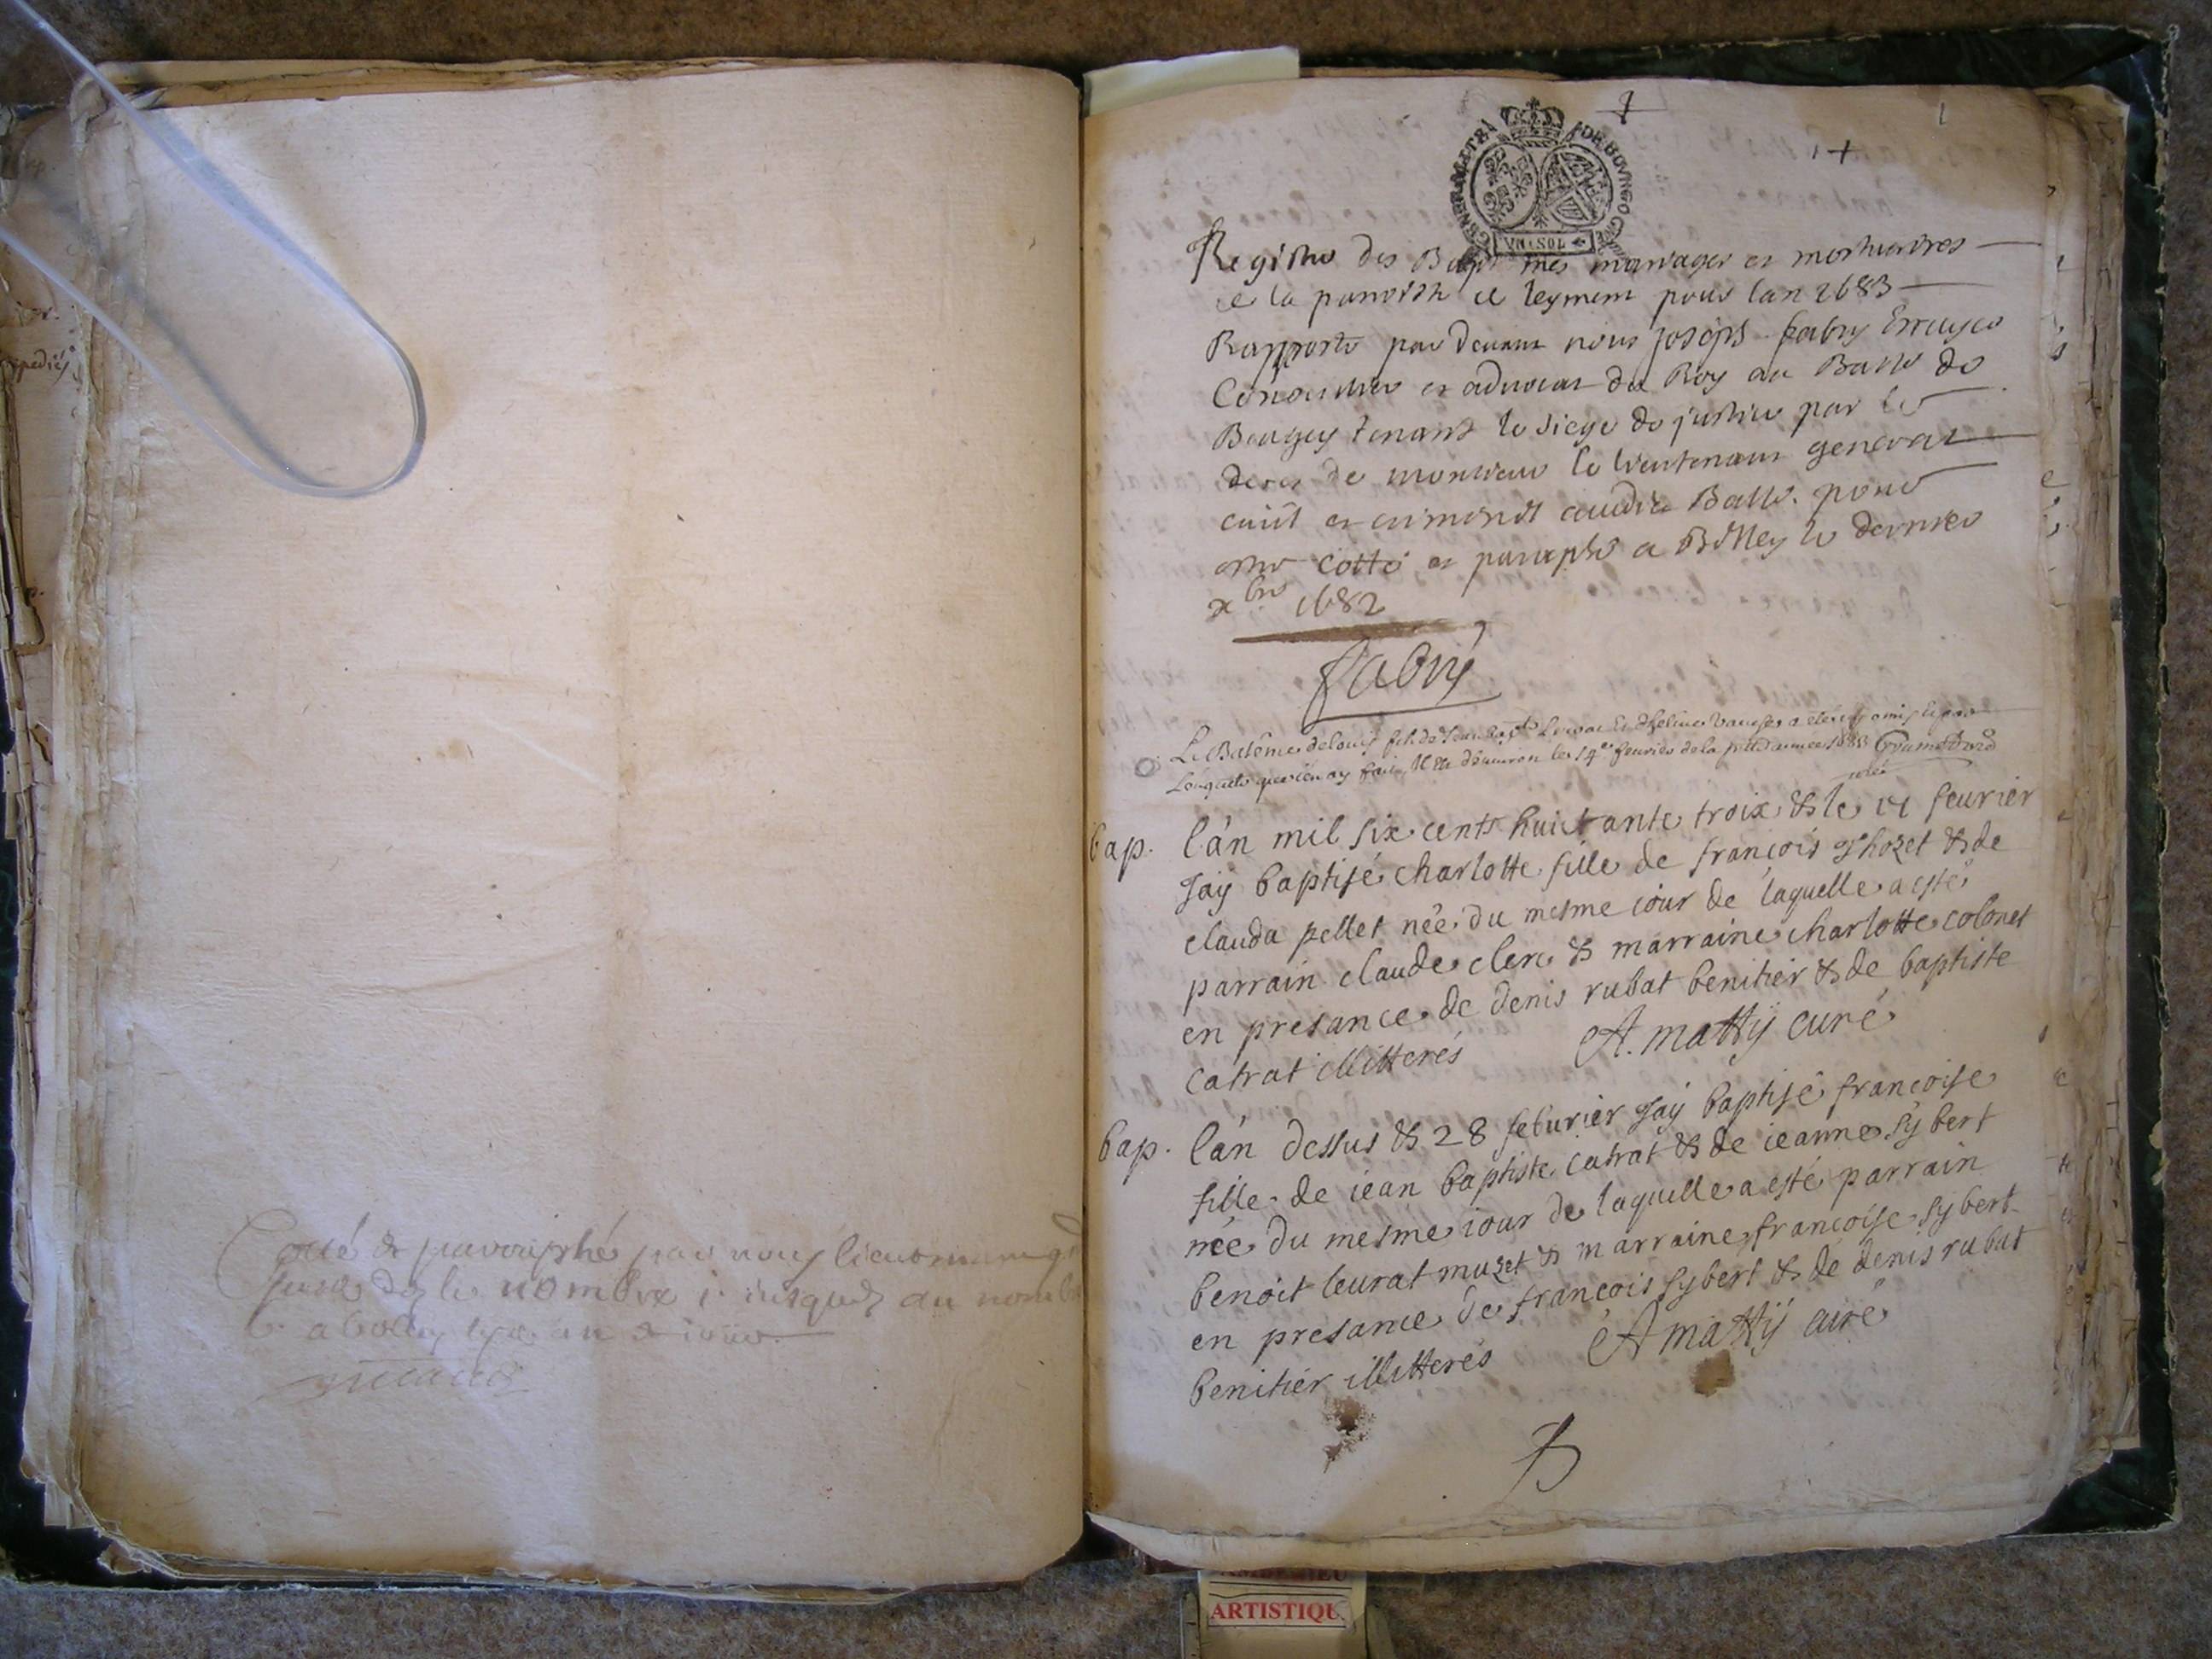 Cotté & paraphé par nous lieutenant g
nombre 1 jusques au nom
GENERALITE DE BOVRGOGNE
VN SOL
Registre des Baptesmes mariages et mortuaires
de la parroisse de leyment pour lan 1683
Rapporté par devant nous joseph fabry Escuyer
Conseiller et advocat du Roy au Balle de
Beugey tenant le siege de justice par le
deces de monsieur le lieutenant general
civil et criminel audit Balle. pour
estre cotté et paraphé a Belley le dernier
xbre 1682
fabry
Le Batême de louis fils de Jean bapt
l'enqueste que i'en ay fait, Il est d'environ le 14e fevrier de la pnte année 1683
bap. l'an mil six cents huictante troix & le 14 feurier
Jaÿ baptisé charlotte fille de françois Ghozet & de
clauda pellet née du mesme iour de laquelle a esté
parrain claude clerc & marraine charlotte colonet
en presance de denis rubat benitier & de baptiste
catrat illitterés A. mattÿ curé
bap. l'an dessus & 28 feburier Jaÿ baptisé françoise
fille de iean baptiste catrat & de ieanne sybert
née du mesme iour de laquelle a esté parrain
benoit leurat muzet & marraine françoise sybert
en presance de françois sybert & de denis rubat
benitier illitterés A mattÿ curé
ARTISTIQU